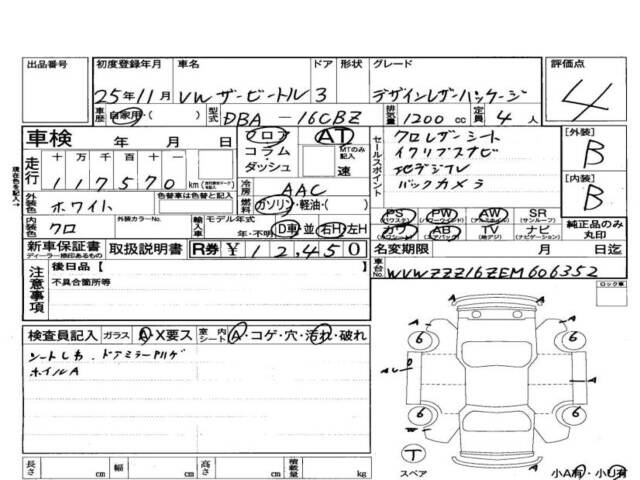 出品番号 初度登録年月 車名 ドア 形状 グレード 評価点
25年11月 VW ザ・ビートル 3 デザインレザーパッケージ 4
車歴 自家用・( ) 型式 DBA - 16CBZ 排気量 1200 cc 定員 4 人
車検 年 月 日 フロア AT セールスポイント クロレザーシート [外装]
コラム・ダッシュ MTのみ記入 速 イクリプスナビ B
走行 十 万 千 百 十 一 地デジTV [内装]
117570 km 冷房 AAC バックカメラ B
外装色 ホワイト 燃料 ガソリン・軽油・( )
色替車は色替と記入
現在色を記入→
PS PW AW SR 純正品のみ丸印
(パワステ) (パワーウインド) (アルミホイル) (サンルーフ)
内装色 クロ 外装カラーNo. 輸入車 モデル年式 年・不明 D車・並 右H・左H
カワ AB TV ナビ
(エアバック) (地デジ) (ナビゲーション)
新車保証書 取扱説明書 R券 ¥12,450 名変期限 月 日迄
ディーラー捺印あるもの
車台No. WVWZZZ16ZEM606352
注意事項 後日品【
不具合箇所等
ロック車
検査員記入 ガラス A・X要ス 室内シート A・コゲ・穴・汚れ・破れ
シートシカ、ドアミラーAハゲ
ホイルA
A
6 6
A
6 6
A
T
スペア 小A有・小U有
長さ cm 幅 cm 高さ cm 積載量 kg